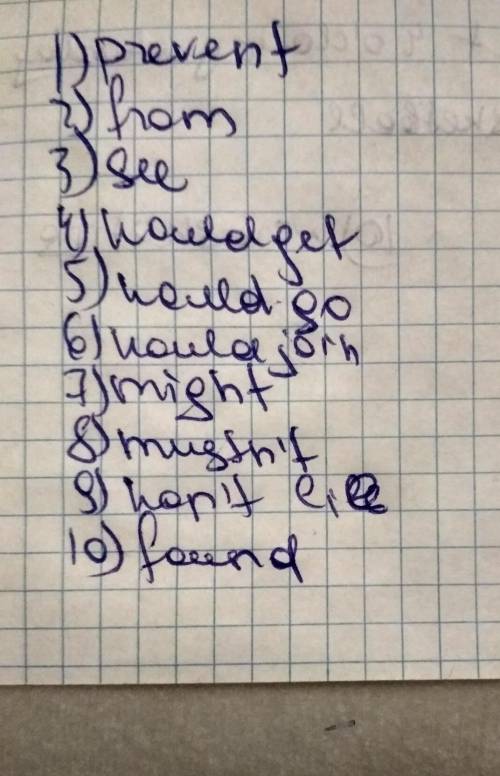 1) prevent
2) from
3) see
4) would get
5) would go
6) would join
7) might
8) mustn't
9) won't
10) found